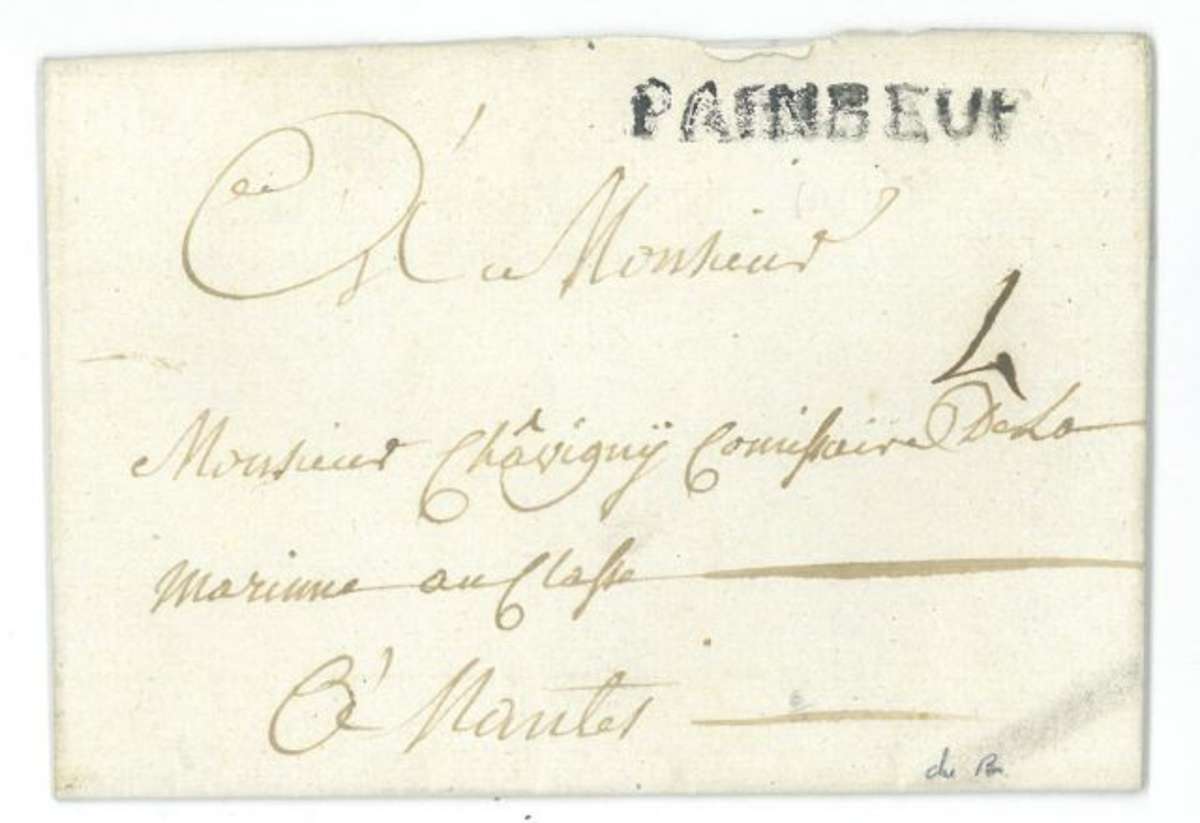 PAINBEUF
A Monsieur
4
Monsieur Châvignÿ Comissaire De La
marinne au Classe
A Nantes